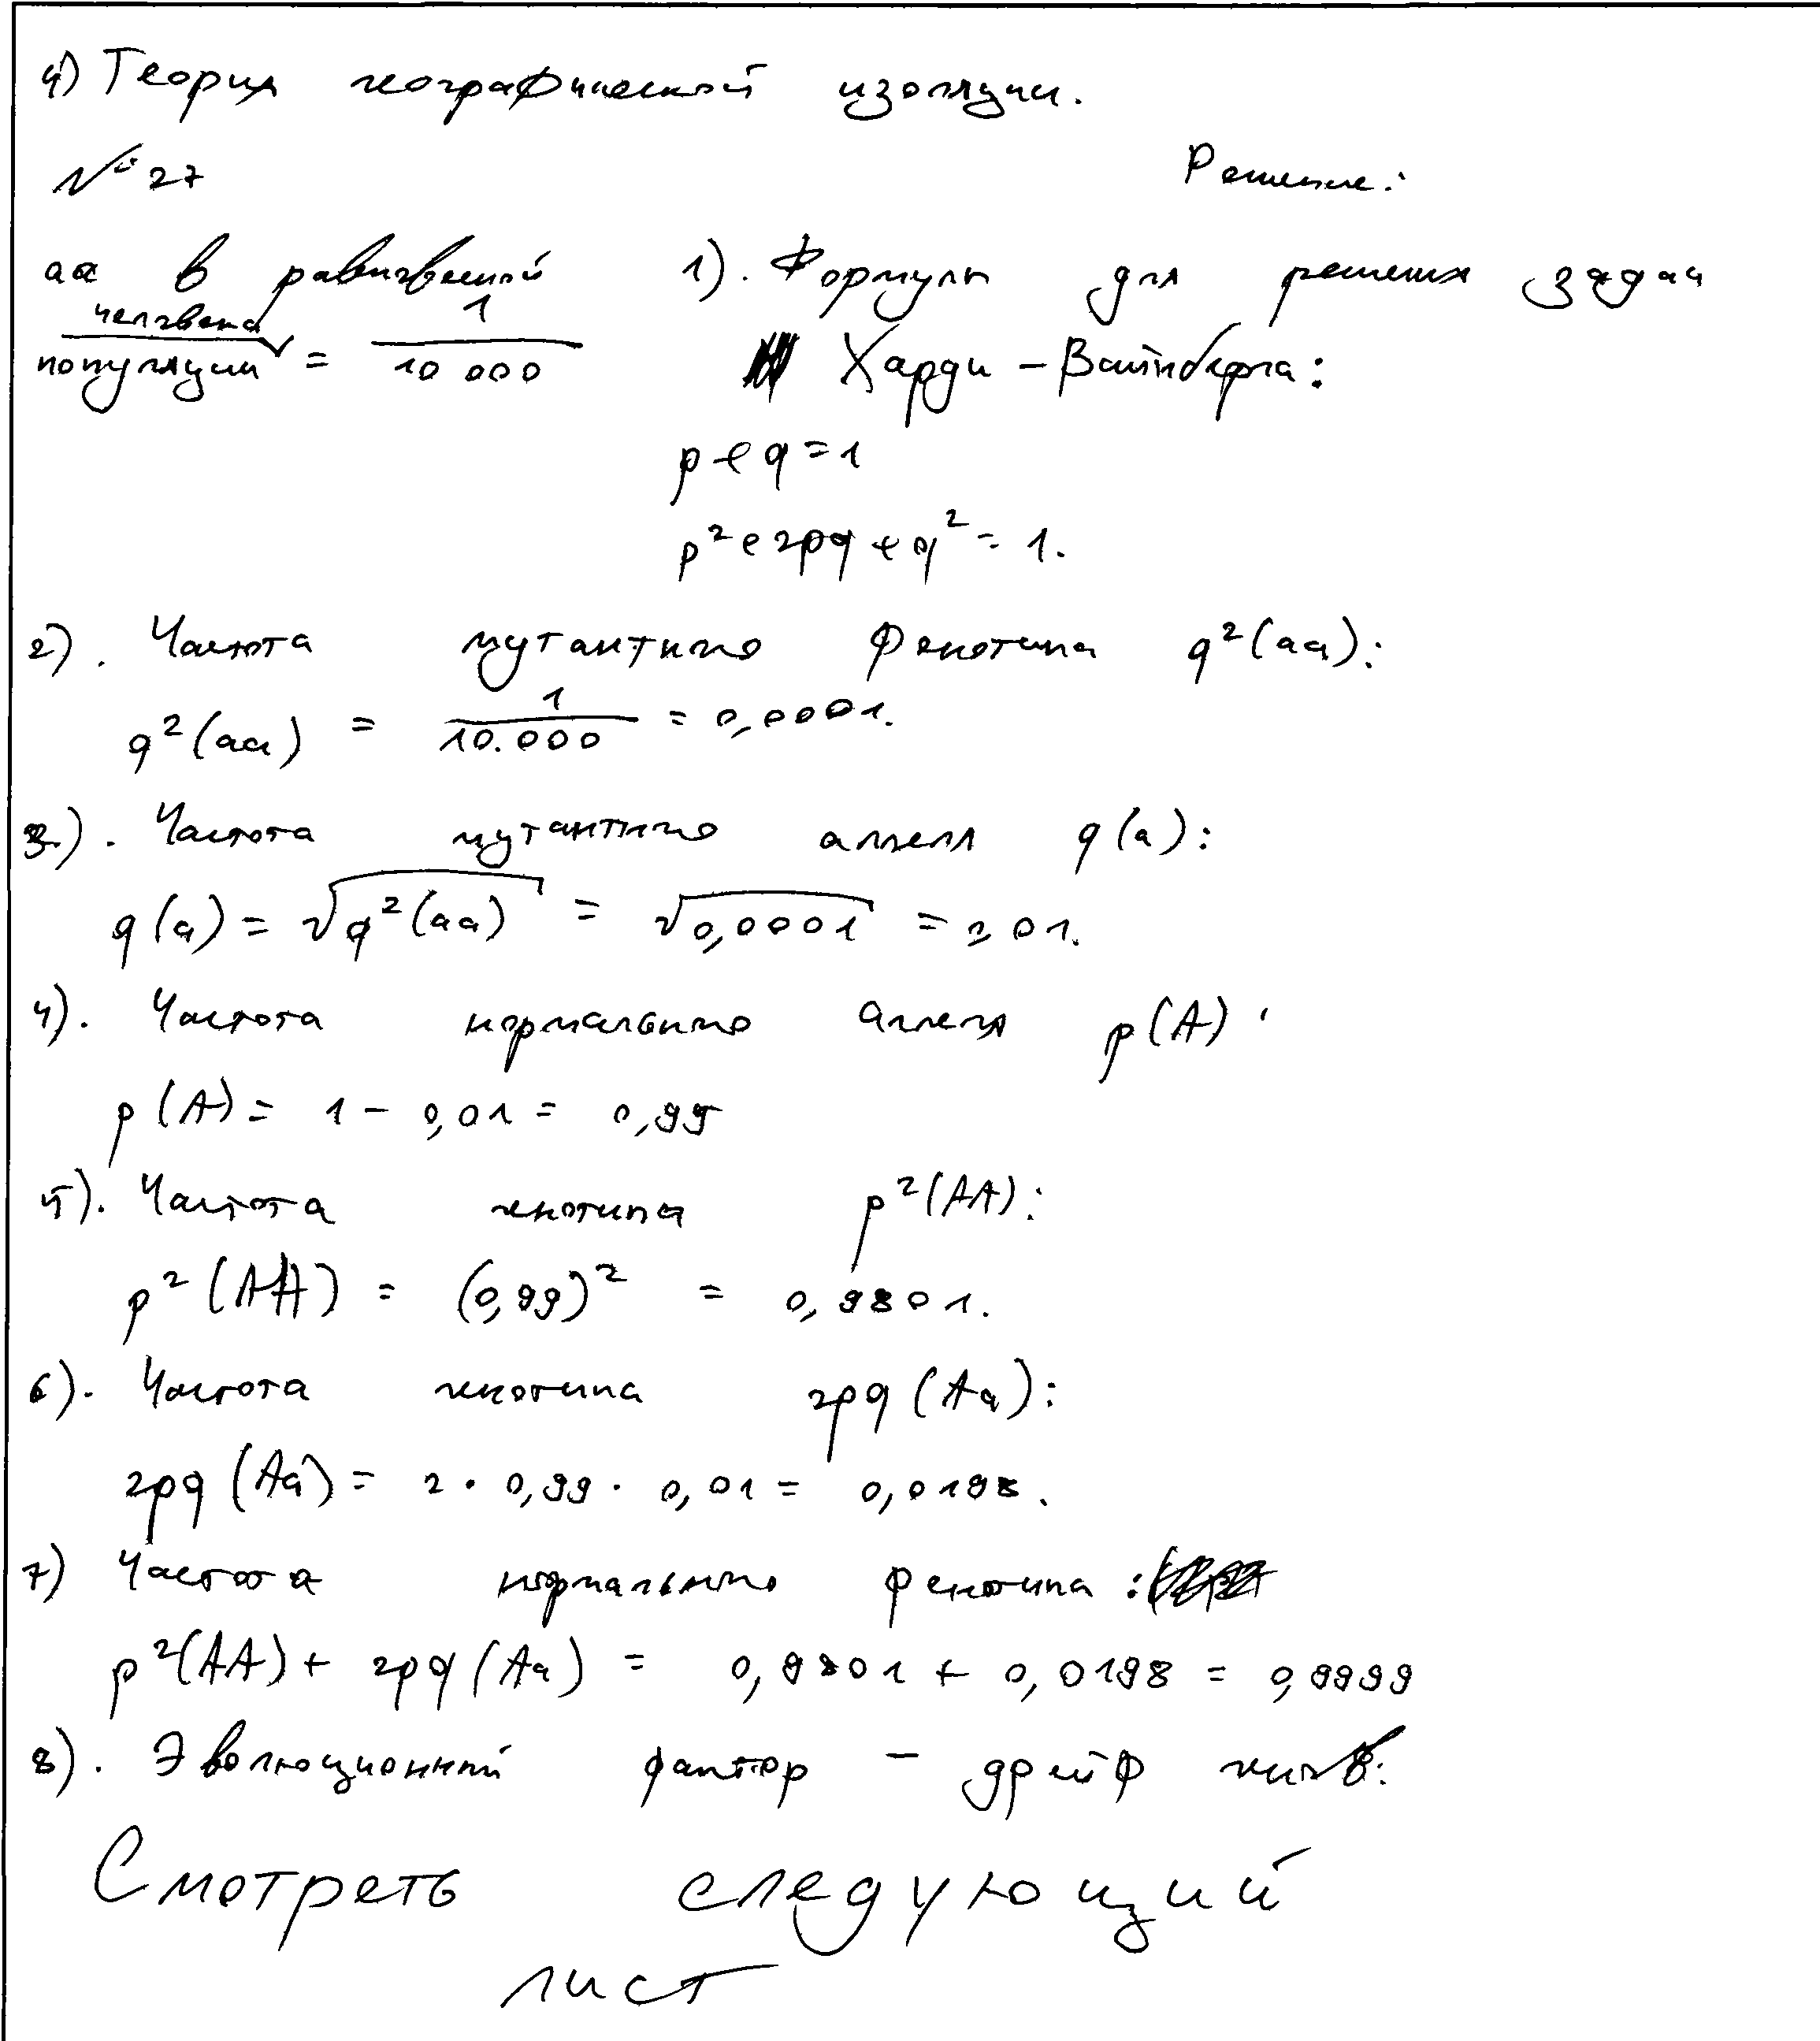 4) Теория географической изоляции.
№ 27
Решение:
аа в равновесной человека
популяции = 1/10 000
1). Формулы для решения задач
Харди – Вайнберга:
p + q = 1
p² + 2pq + q² = 1.
2). Частота мутантного фенотипа q²(aa):
q²(aa) = 1/10.000 = 0,0001.
3.). Частота мутантного аллеля q(a):
q(a) = √q²(aa) = √0,0001 = 0,01.
4). Частота нормального аллеля p(A):
p(A) = 1 – 0,01 = 0,99
5). Частота генотипа p²(AA):
p²(AA) = (0,99)² = 0,9801.
6). Частота генотипа 2pq(Aa):
2pq(Aa) = 2 · 0,99 · 0,01 = 0,0198.
7) Частота нормального фенотипа:
p²(AA) + 2pq(Aa) = 0,9801 + 0,0198 = 0,9999
8). Эволюционный фактор – дрейф генов:
Смотреть следующий
лист